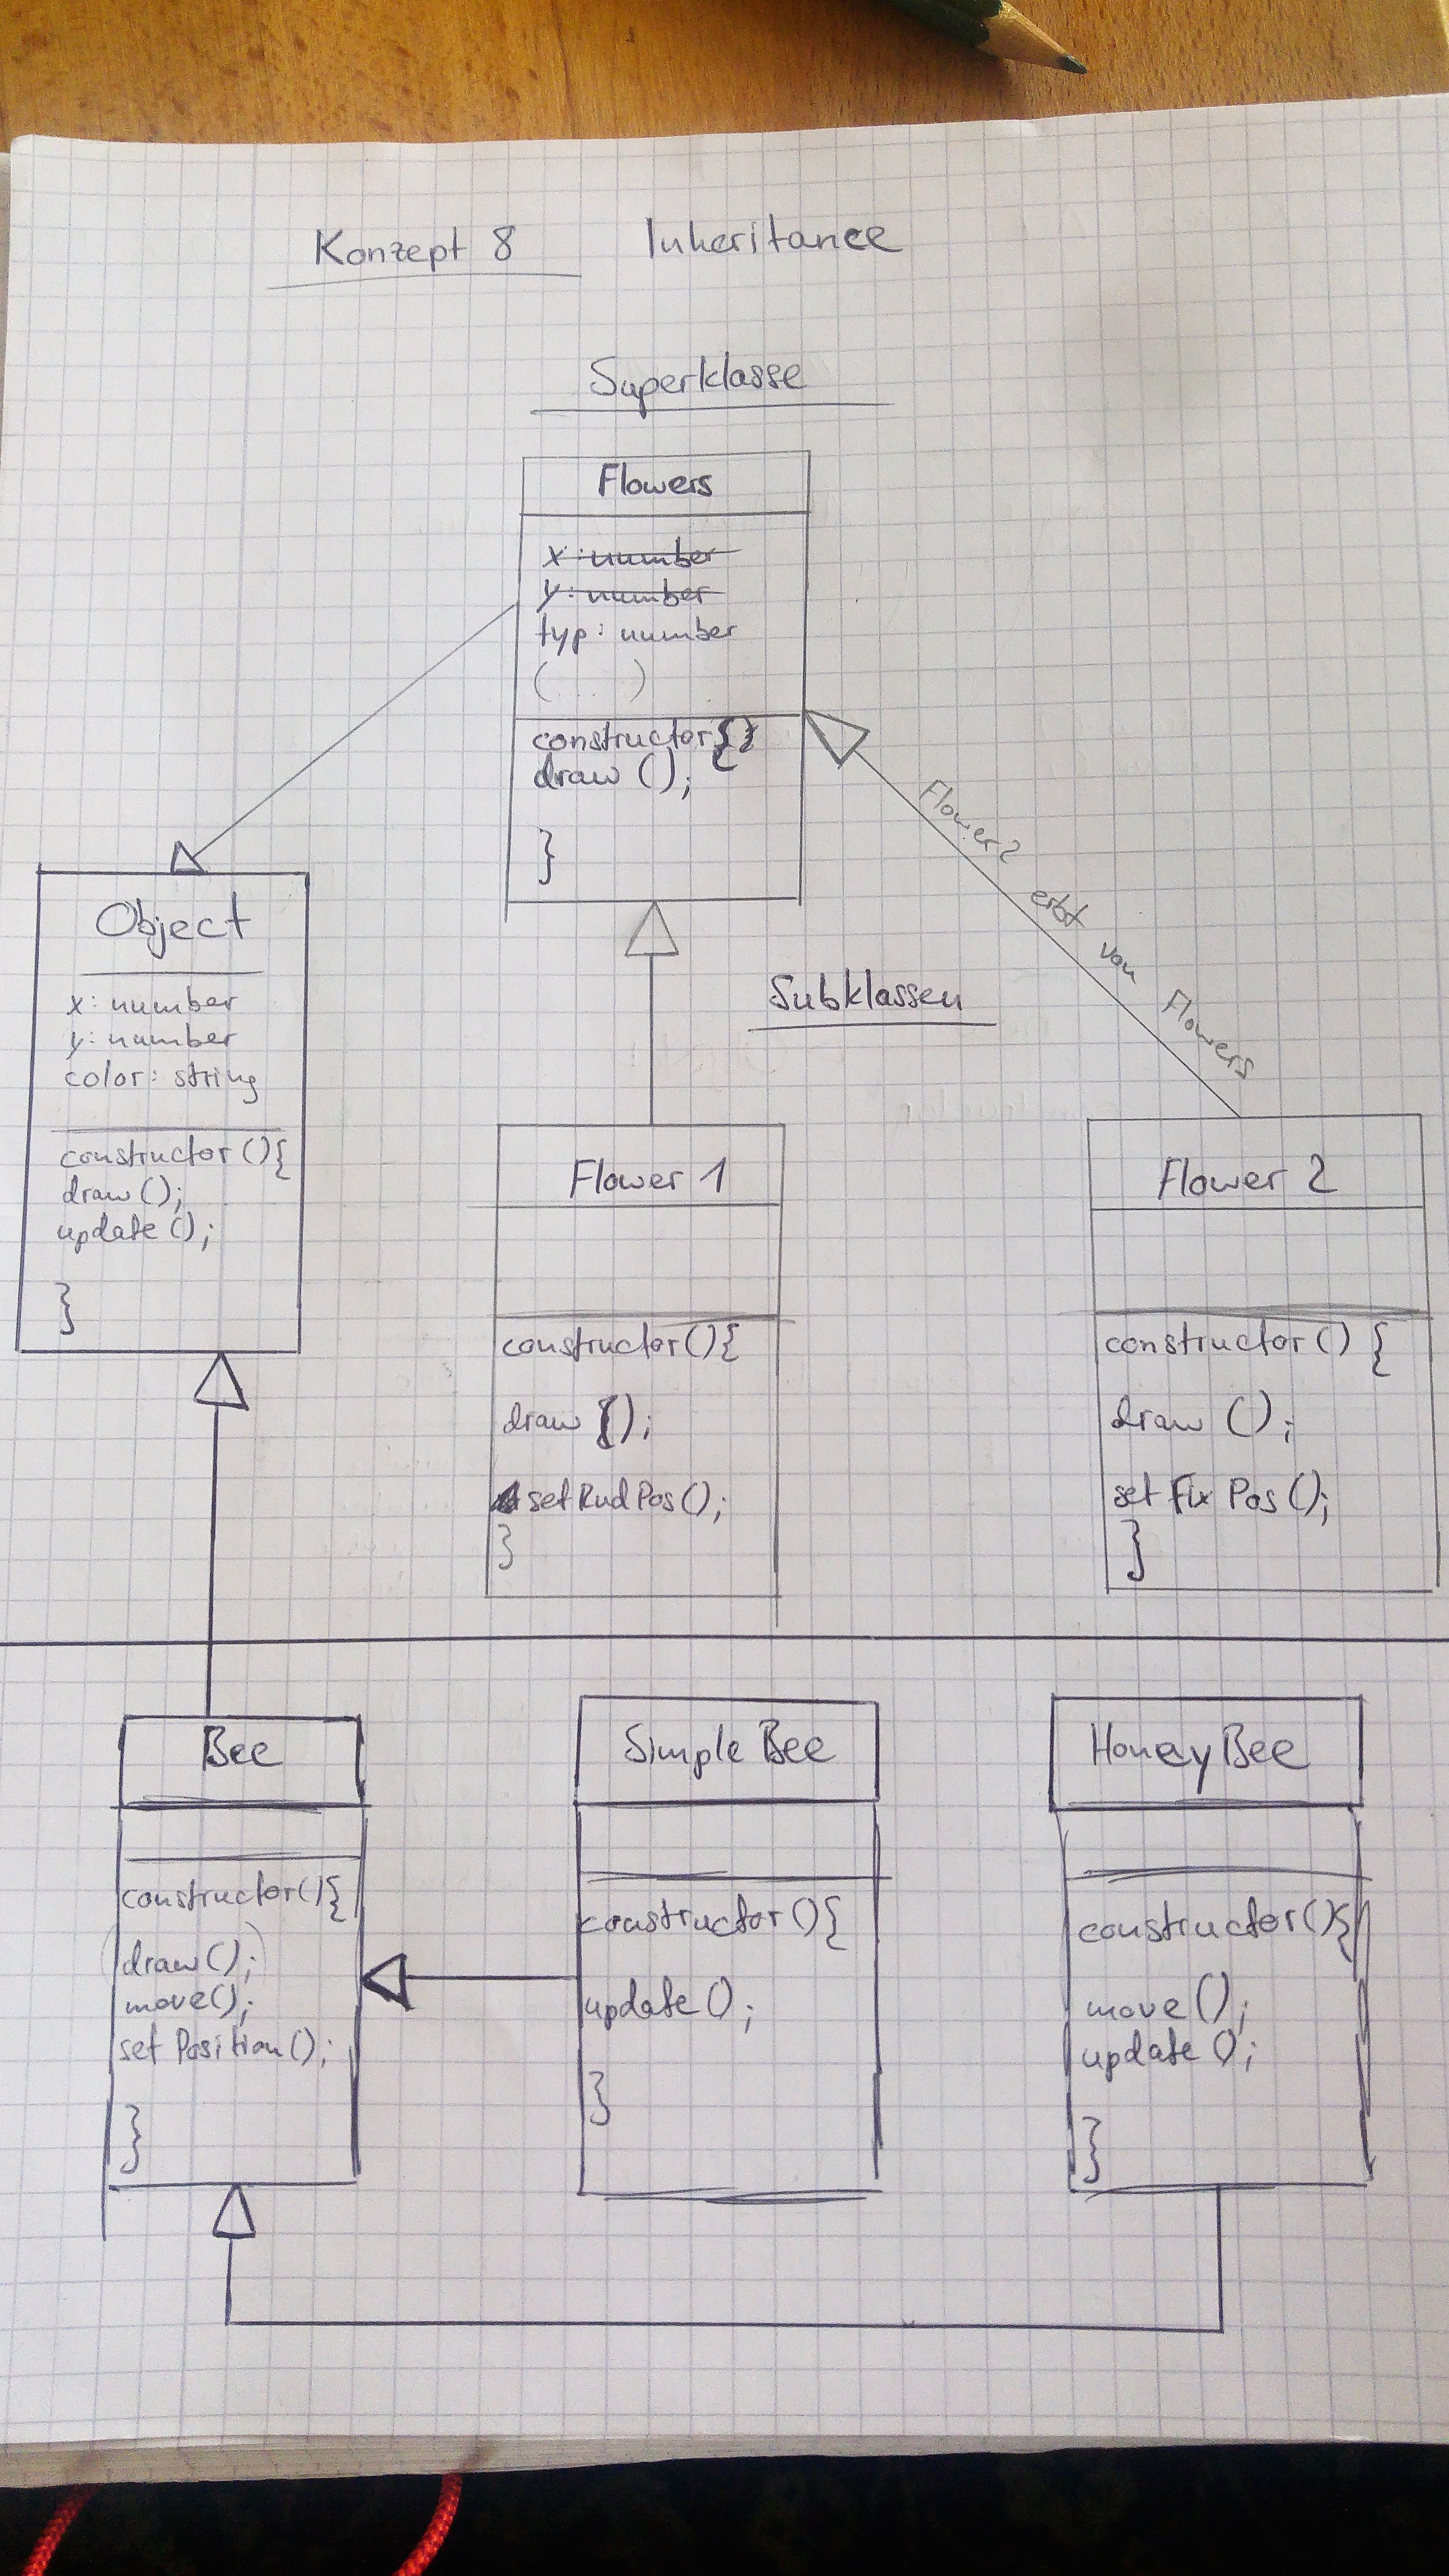 Konzept 8 Inheritance
Superklasse
Flowers
x: number
y: number
typ: number
(...)
constructor{}
draw();
}
Flower2 erbt von Flowers
Object
x: number
y: number
color: string
constructor(){
draw();
update();
}
Subklassen
Flower 1
constructor(){
draw();
setRndPos();
}
Flower 2
constructor() {
draw();
set Fix Pos();
}
Bee
constructor(){
draw();
move();
set Position();
}
Simple Bee
constructor(){
update();
}
Honey Bee
constructor(){
move();
update();
}